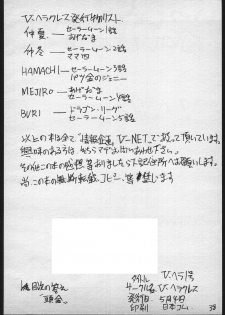 ひ.ヘラクレス発行物リスト
仲夏―セーラームーン1話
おげなま
仲冬―セーラームーン2話
ママ4
HAMACHI―セーラームーン3話
パツ金のジェニー
MEJIRO―あげおま
セーラームーン4話
BURI―ドラゴンリーグ
セーラームーン5話
以上の本は全て"情報企画 ひ-NET"で扱って頂いています。
興味のある方は、そちらまでお問いあわせ下さい。
その他この本の感想等ありましたら下記住所へお願いします。
尚この本の無断転載、コピー等禁じます。
タイトル ひ.ヘラ1号
サークル名 ひ.ヘラクレス
発行日 5月4日
印刷 日本コム
38